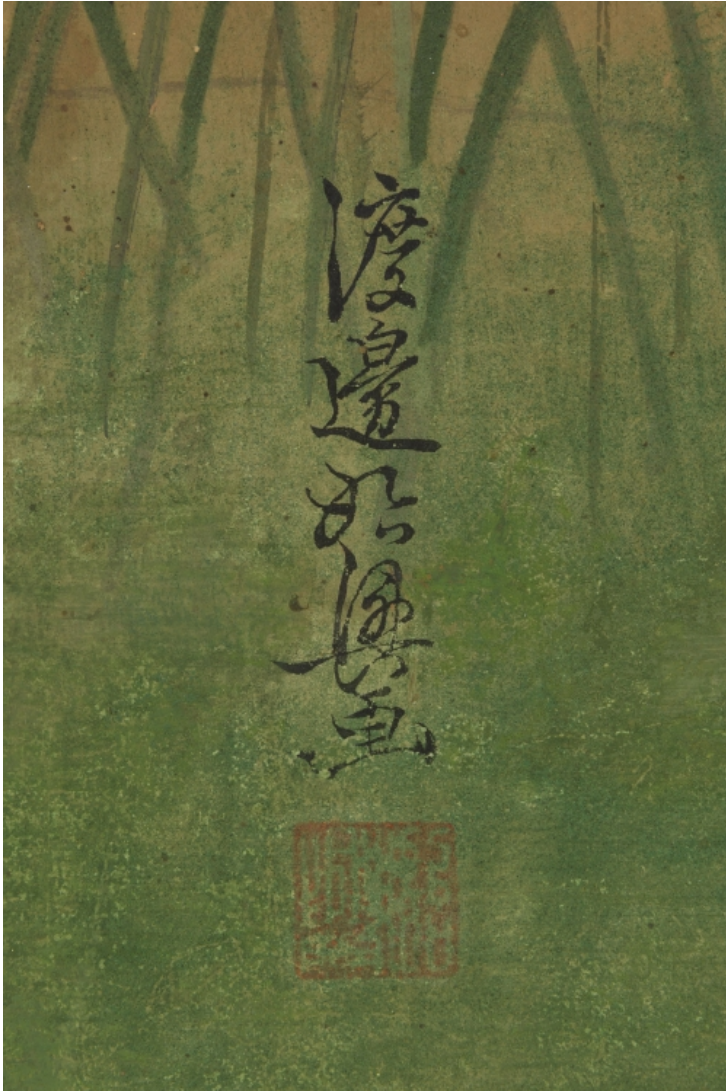 渡邊始興画